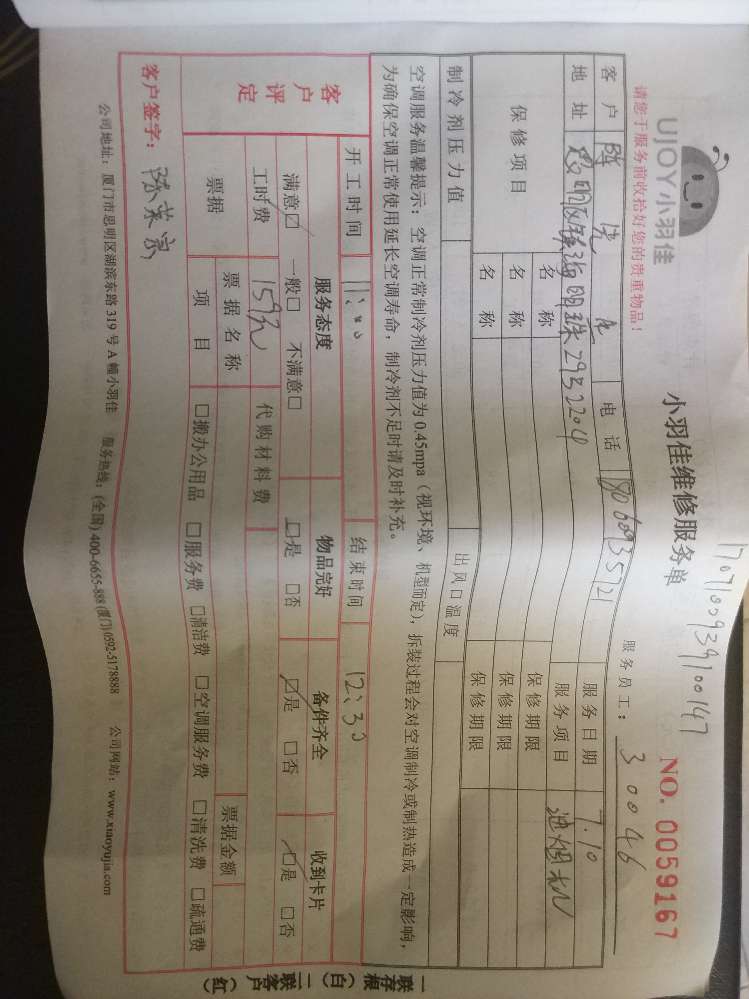 1707100939100147
UJOY小羽佳
小羽佳维修服务单
NO. 0059167
请您于服务前收拾好您的贵重物品!
服务员工: 30046
客户 陈先生 电话 18060935721 服务日期 7.10
地址 思明区银海明珠2932204 服务项目 油烟机
保修项目 名称 保修期限
名称 保修期限
名称 保修期限
制冷剂压力值 出风口温度
空调服务温馨提示:空调正常制冷剂压力值为0.45mpa(视环境、机型而定),拆装过程会对空调制冷或制热造成一定影响,
为确保空调正常使用延长空调寿命,制冷剂不足时请及时补充。
开工时间 11:00 结束时间 12:30
客户评定 服务态度 物品完好 备件齐全 收到卡片
满意☑ 一般□ 不满意□ ☑是 □否 ☑是 □否 ☑是 □否
工时费 159元 代购材料费
票据 票据名称 票据金额
项目 □搬办公用品 □服务费 □清洁费 □空调服务费 □清洗费 □疏通费
客户签字:
公司地址:厦门市思明区湖滨东路319号A幢小羽佳 服务热线:(全国)400-6655-888(厦门)0592-5178888 公司网站:www.xiaoyujia.com
一联存根(白) 二联客户(红)